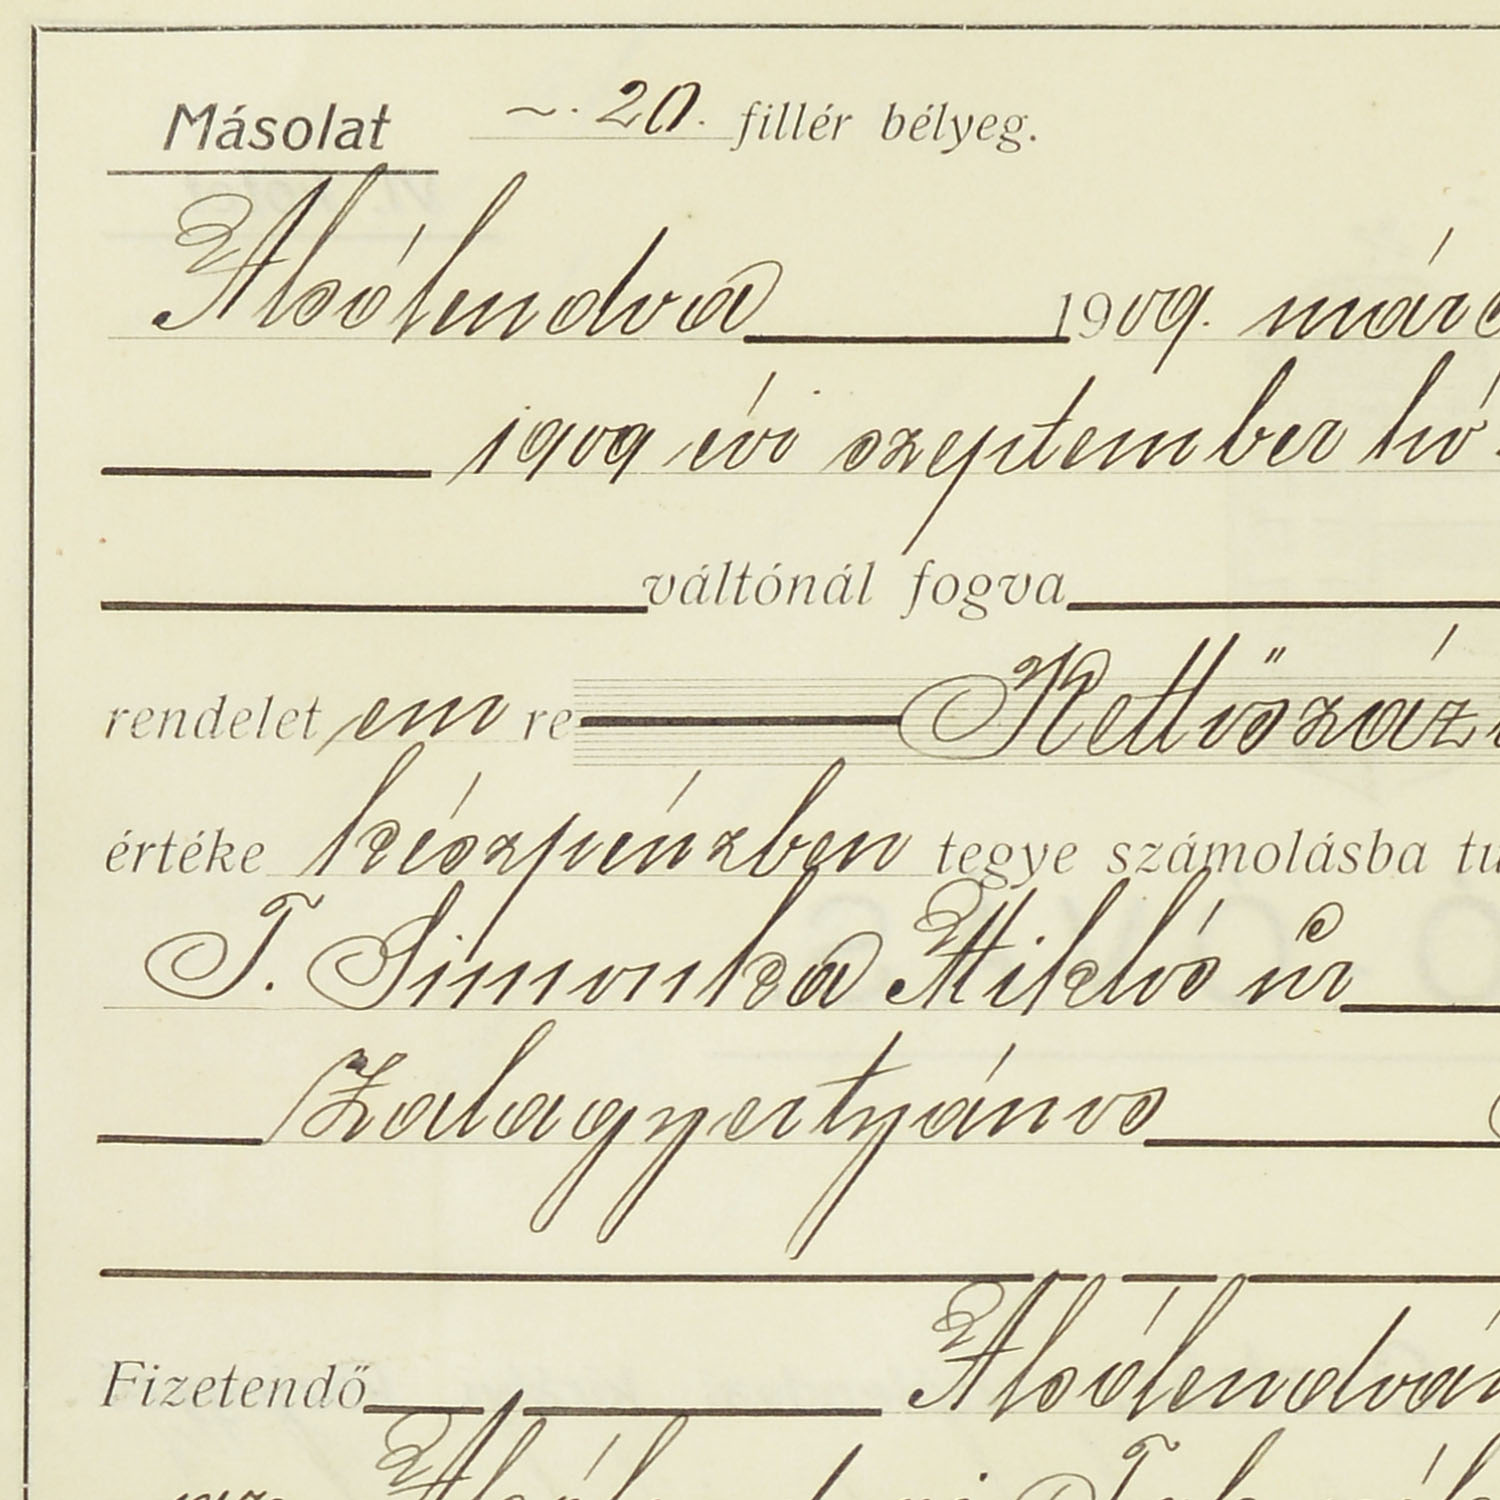 Másolat ~. 20. fillér bélyeg.
Alsólendva 1909. márc
1909 évi szeptember hó
váltónál fogva
rendelet em re Kettőszáz
értéke készpénzben tegye számolásba tu
T. Simonka Miklós úr
Zalagyertyános
Fizetendő Alsólendván